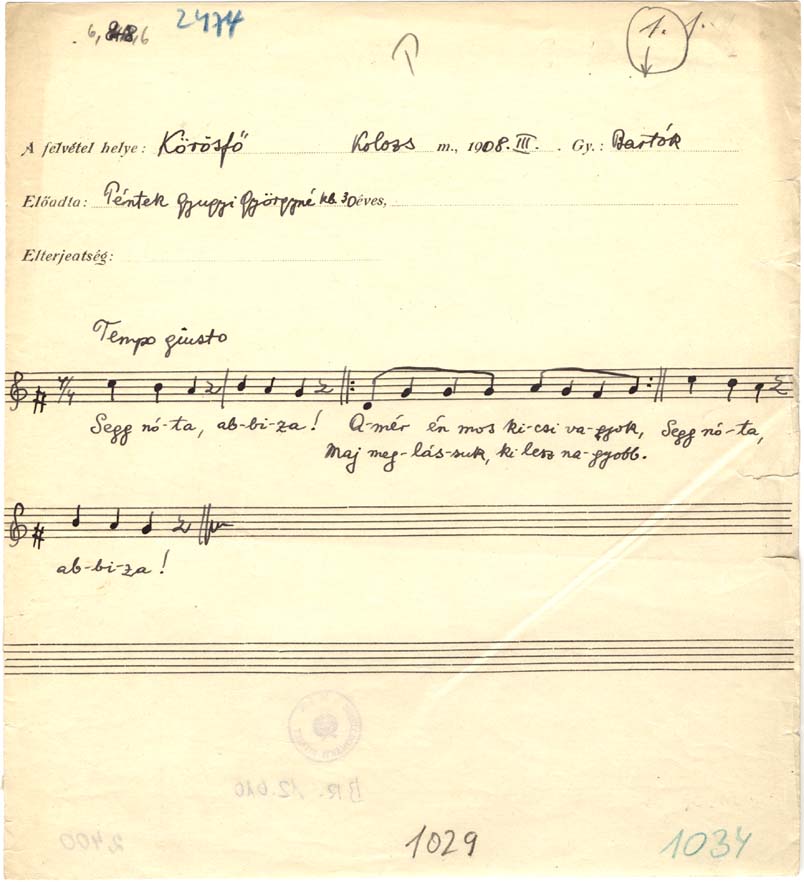 2474
1. J.
A felvétel helye: Körösfő Kolozs m., 1908. III. . Gy.: Bartók
Előadta: Péntek Gyugyi Györgyné kb 30 éves,
Elterjeatség:
Tempo giusto
4/4
Segg nó-ta, ab-bi-za! A-mér én mos ki-csi va-gyok, Segg nó-ta,
Maj meg-lás-suk, ki lesz na-gyobb.
ab-bi-za!
BR. 12.010
2400 1029 1034